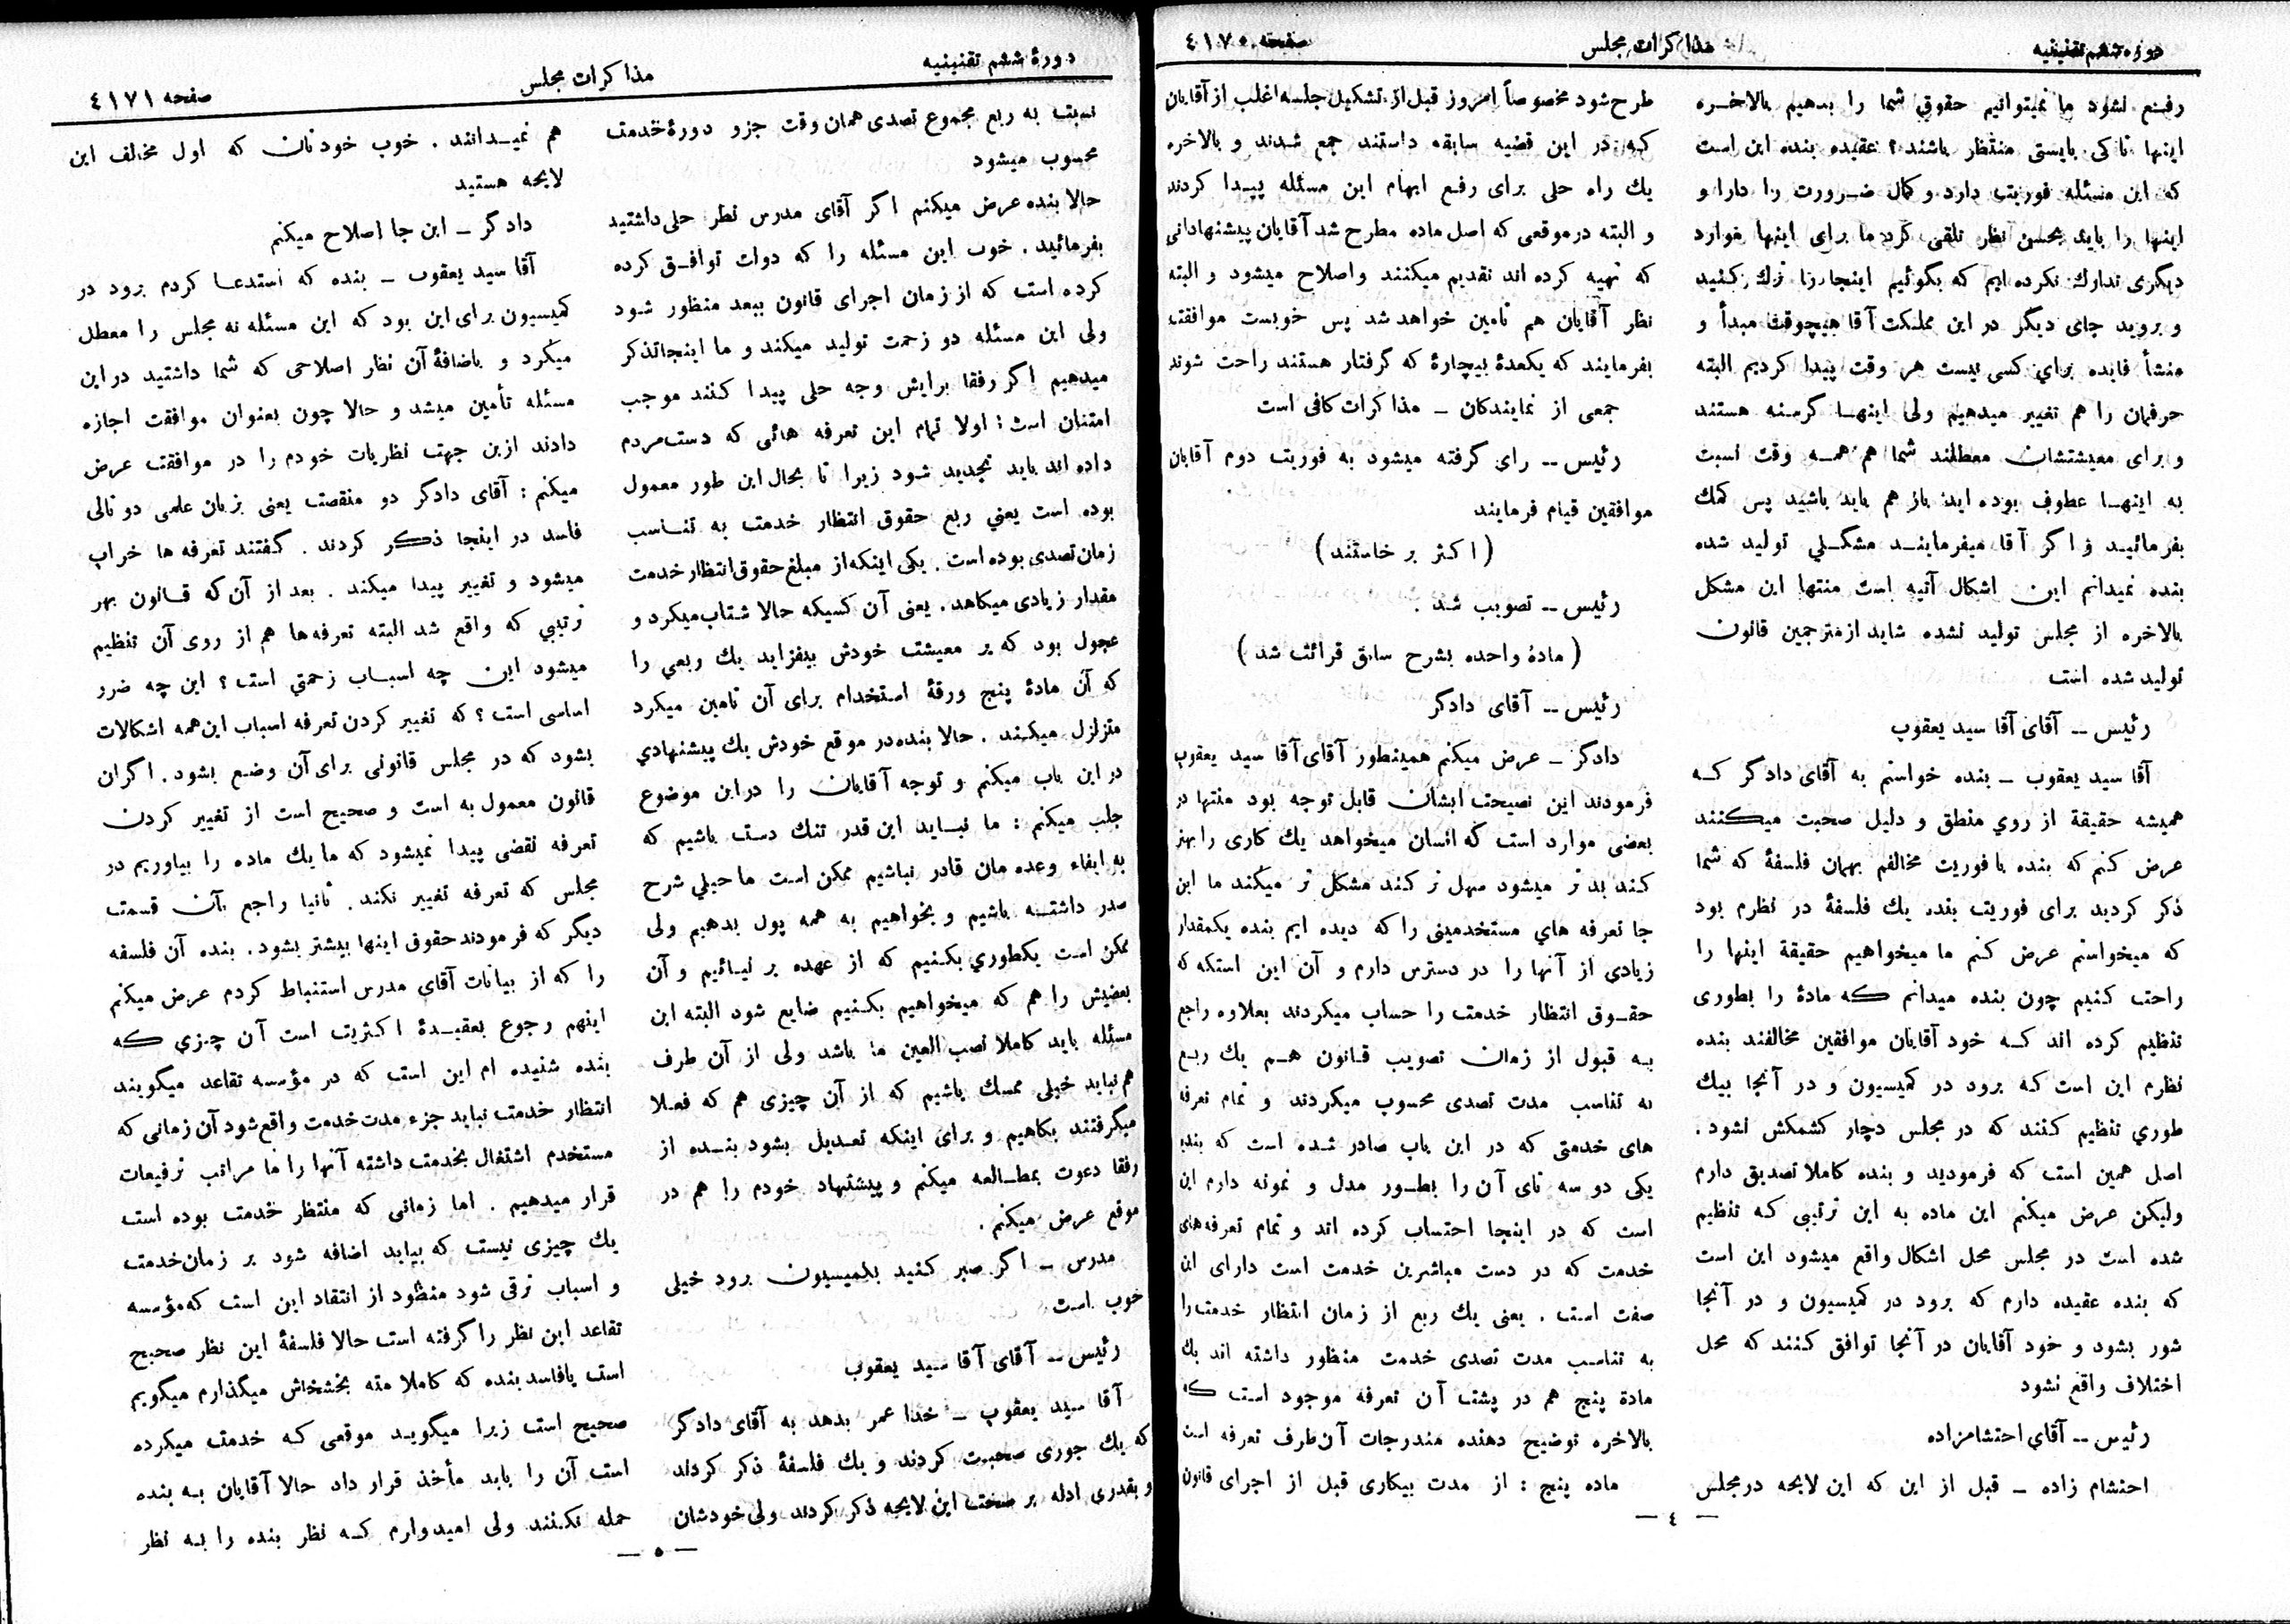 دوره ششم تقنینیه
مذاکرات مجلس
صفحه ٤١٧٠
رفع نشود ما نمیتوانیم حقوق شما را بدهیم بالاخره
اینها تا کی بایستی منتظر باشند؟ عقیده بنده این است
که این مسئله فوریت دارد و کمال ضرورت را دارا و
اینها را باید بحسن نظر تلقی کرد ما برای اینها موارد
دیگری تدارك نکرده ایم که بگوئیم اینجا را ترك کنید
و بروید جای دیگر در این مملکت آقا هیچوقت مبدأ و
منشأ فایده برای کسی نیست هر وقت پیدا کردیم البته
حرفمان را هم تغییر میدهیم ولی اینها گرسنه هستند
و برای معیشتشان معطلند شما هم همه وقت نسبت
به اینها عطوف بوده اید باز هم باید باشید پس کمك
بفرمائید و اگر آقا میفرمایند مشکلی تولید شده
بنده نمیدانم این اشکال آتیه است منتها این مشکل
بالاخره از مجلس تولید نشده شاید از مترجمین قانون
تولید شده است
رئیس -- آقای آقا سید یعقوب
آقا سید یعقوب - بنده خواستم به آقای دادگر که
همیشه حقیقة از روی منطق و دلیل صحبت میکنند
عرض کنم که بنده با فوریت مخالفم بهمان فلسفهٔ که شما
ذکر کردید برای فوریت بنده یك فلسفهٔ در نظرم بود
که میخواستم عرض کنم ما میخواهیم حقیقة اینها را
راحت کنیم چون بنده میدانم که مادهٔ را بطوری
تنظیم کرده اند که خود آقایان موافقین مخالفند بنده
نظرم این است که برود در کمیسیون و در آنجا بیك
طوری تنظیم کنند که در مجلس دچار کشمکش نشود.
اصل همین است که فرمودید و بنده کاملا تصدیق دارم
ولیکن عرض میکنم این ماده به این ترتیبی که تنظیم
شده است در مجلس محل اشکال واقع میشود این است
که بنده عقیده دارم که برود در کمیسیون و در آنجا
شور بشود و خود آقایان در آنجا توافق کنند که محل
اختلاف واقع نشود
رئیس -- آقای احتشامزاده
احتشام زاده - قبل از این که این لایحه در مجلس
طرح شود مخصوصاً امروز قبل از تشکیل جلسه اغلب از آقایان
که در این قضیه سابقه داستند جمع شدند و بالاخره
یك راه حلی برای رفع ابهام این مسئله پیدا کردند
و البته در موقعی که اصل ماده مطرح شد آقایان پیشنهاداتی
که تهیه کرده اند تقدیم میکنند و اصلاح میشود و البته
نظر آقایان هم تامین خواهد شد پس خوبست موافقت
بفرمایند که یکعدهٔ بیچارهٔ که گرفتار هستند راحت شوند
جمعی از نمایندکان - مذاکرات کافی است
رئیس -- رای گرفته میشود به فوریت دوم آقایان
موافقین قیام فرمایند
(اکثر بر خاستند)
رئیس -- تصویب شد.
(مادهٔ واحده بشرح سابق قرائت شد)
رئیس -- آقای دادگر
دادگر - عرض میکنم همینطور آقای آقا سید یعقوب
فرمودند این نصیحت ایشان قابل توجه بود منتها در
بعضی موارد است که انسان میخواهد یك کاری را بهتر
کند بد تر میشود سهل تر کند مشکل تر میکند ما این
جا تعرفه های مستخدمینی را که دیده ایم بنده یکمقدار
زیادی از آنها را در دسترس دارم و آن این استکه که
حقوق انتظار خدمت را حساب میکردند بعلاوه راجع
به قبول از زمان تصویب قانون هم یك ربع
به تناسب مدت تصدی محسوب میکردند و تمام تعرفه
های خدمتی که در این باب صادر شده است که بنده
یکی دو سه تای آن را بطور مدل و نمونه دارم این
است که در اینجا احتساب کرده اند و تمام تعرفه های
خدمت که در دست مباشرین خدمت است دارای این
صفت است. یعنی یك ربع از زمان انتظار خدمت را
به تناسب مدت تصدی خدمت منظور داشته اند یك
مادهٔ پنج هم در پشت آن تعرفه موجود است که
بالاخره توضیح دهنده مندرجات آن طرف تعرفه است
ماده پنج : از مدت بیکاری قبل از اجرای قانون
— ٤ —
دورهٔ ششم تقنینیه
مذاکرات مجلس
صفحه ٤١٧١
نسبت به ربع مجموع تصدی همان وقت جزو دورهٔ خدمت
محسوب میشود
حالا بنده عرض میکنم اگر آقای مدرس نظر حلی داشتید
بفرمائید. خوب این مسئله را که دوات توافق کرده
کرده است که از زمان اجرای قانون ببعد منظور شود
ولی این مسئله دو زحمت تولید میکند و ما اینجا تذکر
میدهیم اگر رفقا برایش وجه حلی پیدا کنند موجب
امتنان است : اولا تمام این تعرفه هائی که دست مردم
داده اند باید تجدید شود زیرا تا بحال این طور معمول
بوده است یعنی ربع حقوق انتظار خدمت به تناسب
زمان تصدی بوده است. یکی اینکه از مبلغ حقوق انتظار خدمت
مقدار زیادی میکاهد. یعنی آن کسیکه حالا شتاب میکرد و
عجول بود که بر معیشت خودش بیفزاید یك ربعی را
که آن مادهٔ پنج ورقهٔ استخدام برای آن تامین میکرد
متزلزل میکند. حالا بنده در موقع خودش یك پیشنهادی
در این باب میکنم و توجه آقایان را در این موضوع
جلب میکنم : ما نباید این قدر تنك دست باشیم که
به ایفاء وعده مان قادر نباشیم ممکن است ما خیلی شرح
صدر داشته باشیم و بخواهیم به همه پول بدهیم ولی
ممکن است یکطوری بکنیم که از عهده بر نیائیم و آن
بعضیش را هم که میخواهیم بکنیم ضایع شود البته این
مسئله باید کاملا نصب العین ما باشد ولی از آن طرف
هم نباید خیلی ممسك باشیم که از آن چیزی هم که فعلا
میگرفتند بکاهیم و برای اینکه تعدیل بشود بنده از
رفقا دعوت بمطالعه میکنم و پیشنهاد خودم را هم در
موقع عرض میکنم.
مدرس - اگر صبر کنید بکمیسیون برود خیلی
خوب است
رئیس -- آقای آقا سید یعقوب
آقا سید یعقوب - خدا عمر بدهد به آقای دادگر
که یك جوری صحبت کردند و یك فلسفهٔ ذکر کردند
و بقدری ادله بر صحت این لایحه ذکر کردند ولی خودشان
هم نمیدانند. خوب خودتان که اول مخالف این
لایحه هستید
دادگر - این جا اصلاح میکنم
آقا سید یعقوب - بنده که استدعا کردم برود در
کمیسیون برای این بود که این مسئله نه مجلس را معطل
میکرد و باضافهٔ آن نظر اصلاحی که شما داشتید در این
مسئله تأمین میشد و حالا چون بعنوان موافقت اجازه
دادند ازین جهت نظریات خودم را در موافقت عرض
میکنم : آقای دادگر دو منقصت یعنی بزبان علمی دو تالی
فاسد در اینجا ذکر کردند. گفتند تعرفه ها خراب
میشود و تغییر پیدا میکند. بعد از آن که قانون بهر
ترتیبی که واقع شد البته تعرفه ها هم از روی آن تنظیم
میشود این چه اسباب زحمتی است؟ این چه ضرر
اساسی است؟ که تغییر کردن تعرفه اسباب این همه اشکالات
بشود که در مجلس قانونی برای آن وضع بشود. اگر ان
قانون معمول به است و صحیح است از تغییر کردن
تعرفه نقضی پیدا نمیشود که ما یك ماده را بیاوریم در
مجلس که تعرفه تغییر نکند. ثانیا راجع بآن قسمت
دیگر که فرمودند حقوق اینها بیشتر بشود. بنده آن فلسفه
را که از بیانات آقای مدرس استنباط کردم عرض میکنم
اینهم رجوع بعقیدهٔ اکثریت است آن چیزی که
بنده شنیده ام این است که در مؤسسه تقاعد میگویند
انتظار خدمت نباید جزء مدت خدمت واقع شود آن زمانی که
مستخدم اشتغال بخدمت داشته آنها را ما مراتب ترفیعات
قرار میدهیم. اما زمانی که منتظر خدمت بوده است
یك چیزی نیست که بیاید اضافه شود بر زمان خدمت
و اسباب ترقی شود منظود از انتقاد این است که مؤسسه
تقاعد این نظر را گرفته است حالا فلسفهٔ این نظر صحیح
است یا فاسد بنده که کاملا مته بخشخاش میگذارم میگویم
صحیح است زیرا میگوید موقعی که خدمت میکرده
است آن را باید مأخذ قرار داد حالا آقایان به بنده
حمله نکنند ولی امیدوارم که نظر بنده را به نظر
— ٥ —